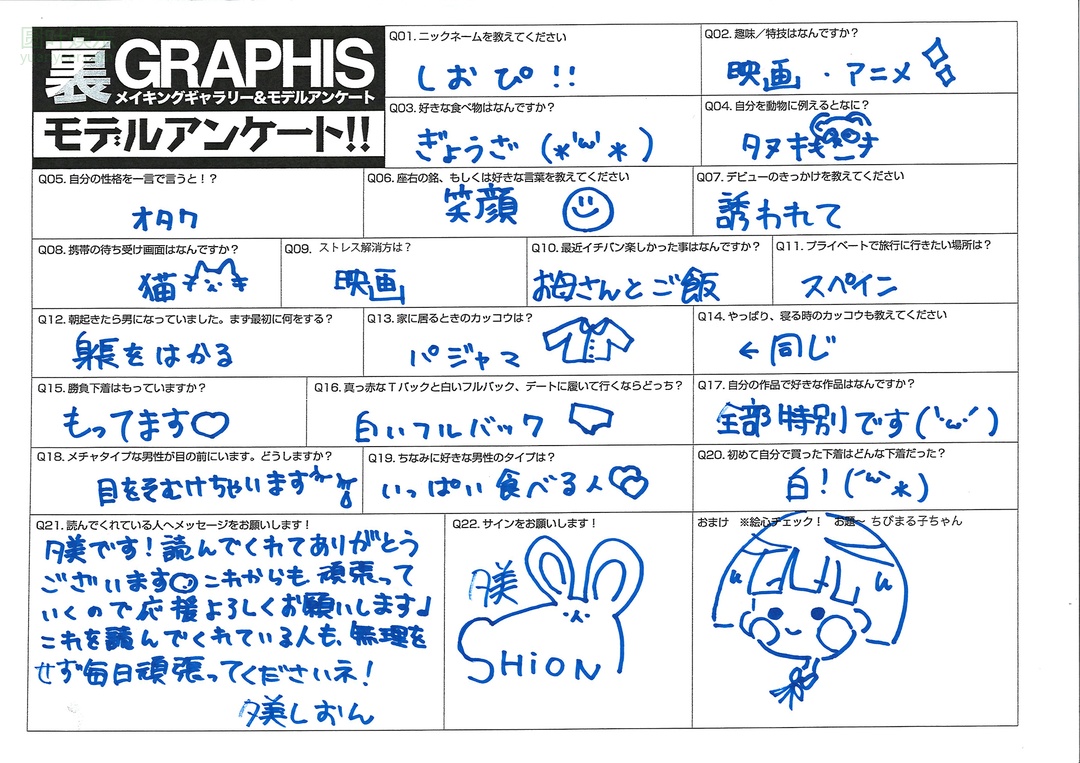 裏GRAPHIS
メイキングギャラリー&モデルアンケート
モデルアンケート!!
Q01. ニックネームを教えてください
しおぴ!!
Q02. 趣味／特技はなんですか？
映画・アニメ
Q03. 好きな食べ物はなんですか？
ぎょうざ (*'ω'*)
Q04. 自分を動物に例えるとなに？
タヌキ
Q05. 自分の性格を一言で言うと！？
オタク
Q06. 座右の銘、もしくは好きな言葉を教えてください
笑顔
Q07. デビューのきっかけを教えてください
誘われて
Q08. 携帯の待ち受け画面はなんですか？
猫
Q09. ストレス解消方は？
映画
Q10. 最近イチバン楽しかった事はなんですか？
お母さんとご飯
Q11. プライベートで旅行に行きたい場所は？
スペイン
Q12. 朝起きたら男になっていました。まず最初に何をする？
身長をはかる
Q13. 家に居るときのカッコウは？
パジャマ
Q14. やっぱり、寝る時のカッコウも教えてください
←同じ
Q15. 勝負下着はもっていますか？
もってます♡
Q16. 真っ赤なTバックと白いフルバック、デートに履いて行くならどっち？
白いフルバック
Q17. 自分の作品で好きな作品はなんですか？
全部特別です('･ω･')
Q18. メチャタイプな男性が目の前にいます。どうしますか？
目をそむけちゃいます
Q19. ちなみに好きな男性のタイプは？
いっぱい食べる人♡
Q20. 初めて自分で買った下着はどんな下着だった？
白！('ω'*)
Q21. 読んでくれている人へメッセージをお願いします！
夕美です！読んでくれてありがとう
ございます♡これからも頑張って
いくので応援よろしくお願いします♩
これを読んでくれている人も、無理を
せず毎日頑張ってくださいネ！
夕美しおん
Q22. サインをお願いします！
夕美
SHION
おまけ ※絵心チェック！ お題〜 ちびまる子ちゃん